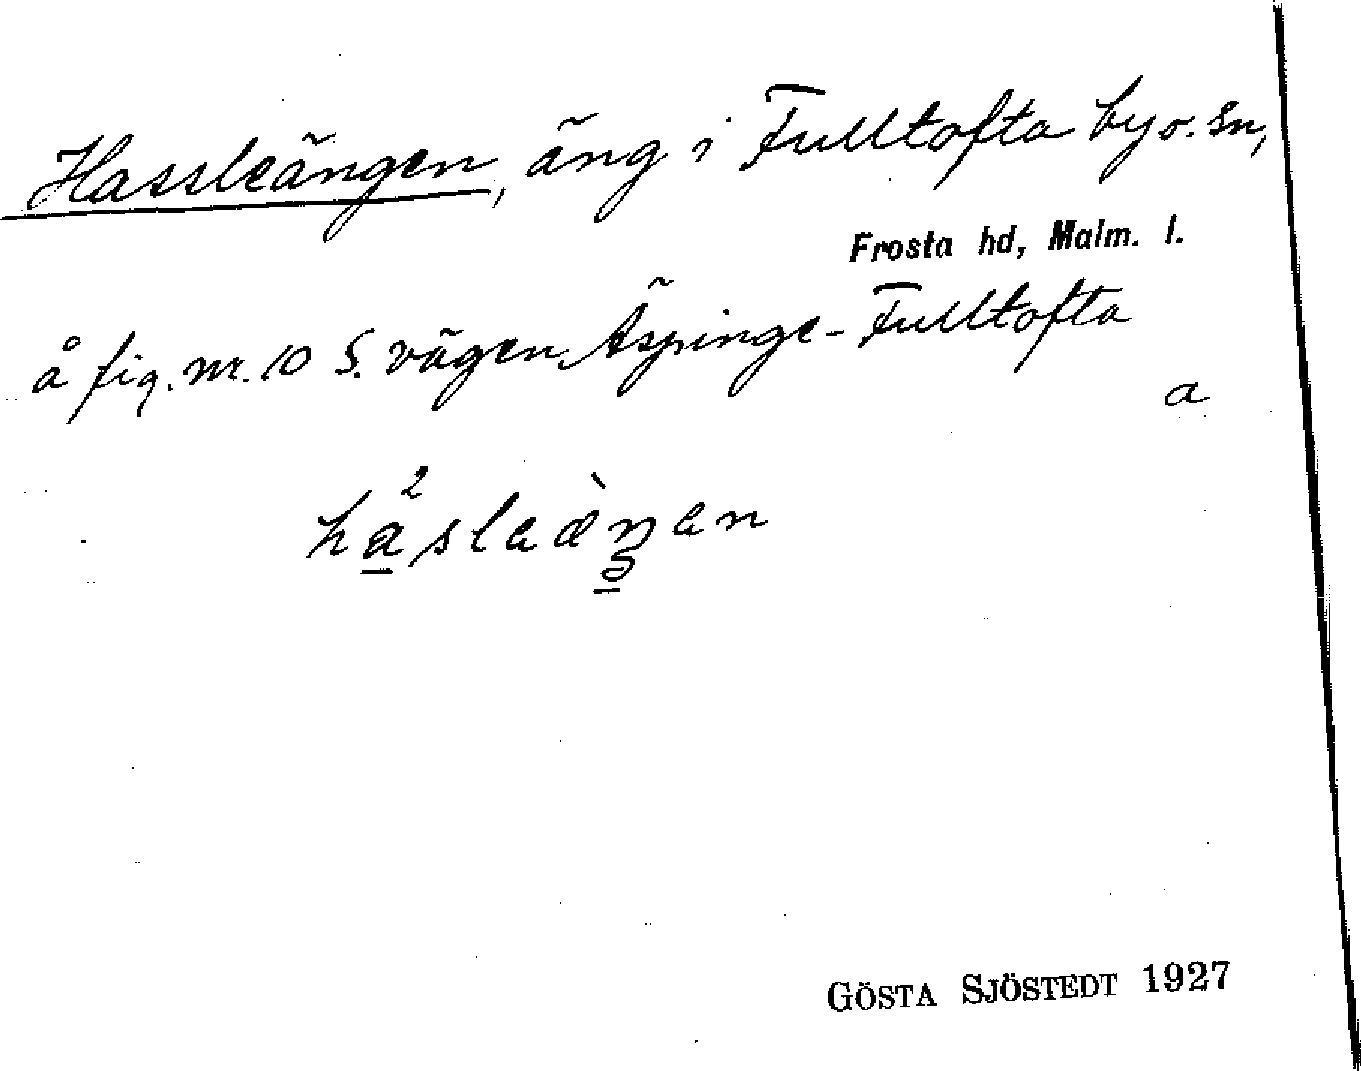 Hassleängen, äng i Fulltofta by o. sn,
Frosta hd, Malm. l.
å fig. nr. 10 S. vägen Äspinge-Fulltofta
a
GÖSTA SJÖSTEDT 1927